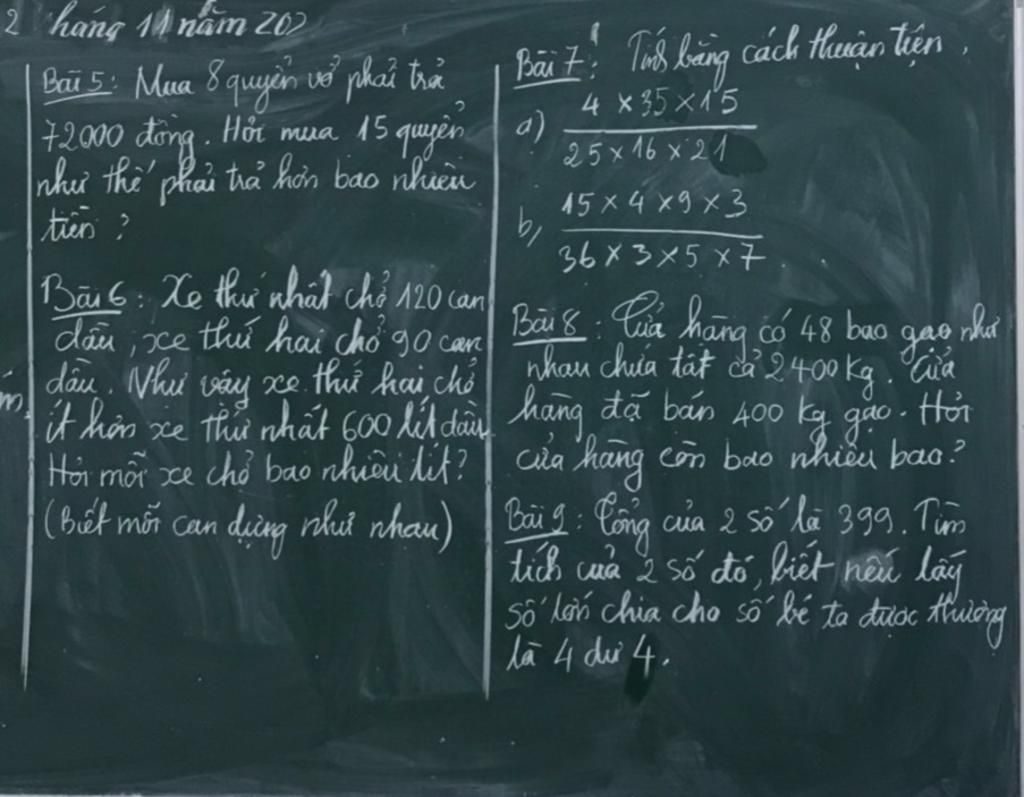 2 háng 11 năm 202
Bài 5: Mua 8 quyển vở phải trả
72000 đồng. Hỏi mua 15 quyển
như thế phải trả hơn bao nhiêu
tiền ?
Bài 6: Xe thứ nhất chở 120 can
dầu, xe thứ hai chở 90 can
dầu. Như vậy xe thứ hai chở
ít hơn xe thứ nhất 600 lít dầu
Hỏi mỗi xe chở bao nhiêu lít?
(Biết mỗi can đựng như nhau)
m,
Bài 7: Tính bằng cách thuận tiện.
a) 4 × 35 × 15
25 × 16 × 21
b, 15 × 4 × 9 × 3
36 × 3 × 5 × 7
Bài 8: Cửa hàng có 48 bao gạo như
nhau chứa tất cả 2400kg. Cửa
hàng đã bán 400 kg gạo. Hỏi
cửa hàng còn bao nhiêu bao?
Bài 9: Tổng của 2 số là 399. Tìm
tích của 2 số đó, biết nếu lấy
số lớn chia cho số bé ta được thương
là 4 dư 4.